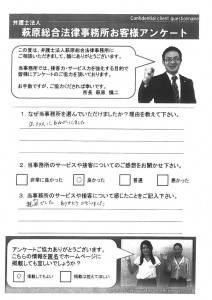 Confidential client questionnaire
弁護士法人
萩原総合法律事務所お客様アンケート
この度は、弁護士法人萩原総合法律事務所に
ご相談いただきまして、誠にありがとうございます。
当事務所では、接客力・サービス力を強化する目的で
皆様にアンケートのご協力を頂いております。
お手数ですが、ご協力ください。
所長 萩原 慎二
1. なぜ当事務所を選んでいただけましたか？理由を教えて下さい。
2. 当事務所のサービスや接客についてのご感想をお聞かせ下さい。
非常に良かった
良かった
普通
悪かった
3. 当事務所のサービスや接客について感じたことをご記入下さい。
ありがとうございました
アンケートご協力ありがとうございます。
こちらの情報を匿名でホームページに
掲載しても宜しいでしょうか？
掲載してもよい
掲載は控えてほしい